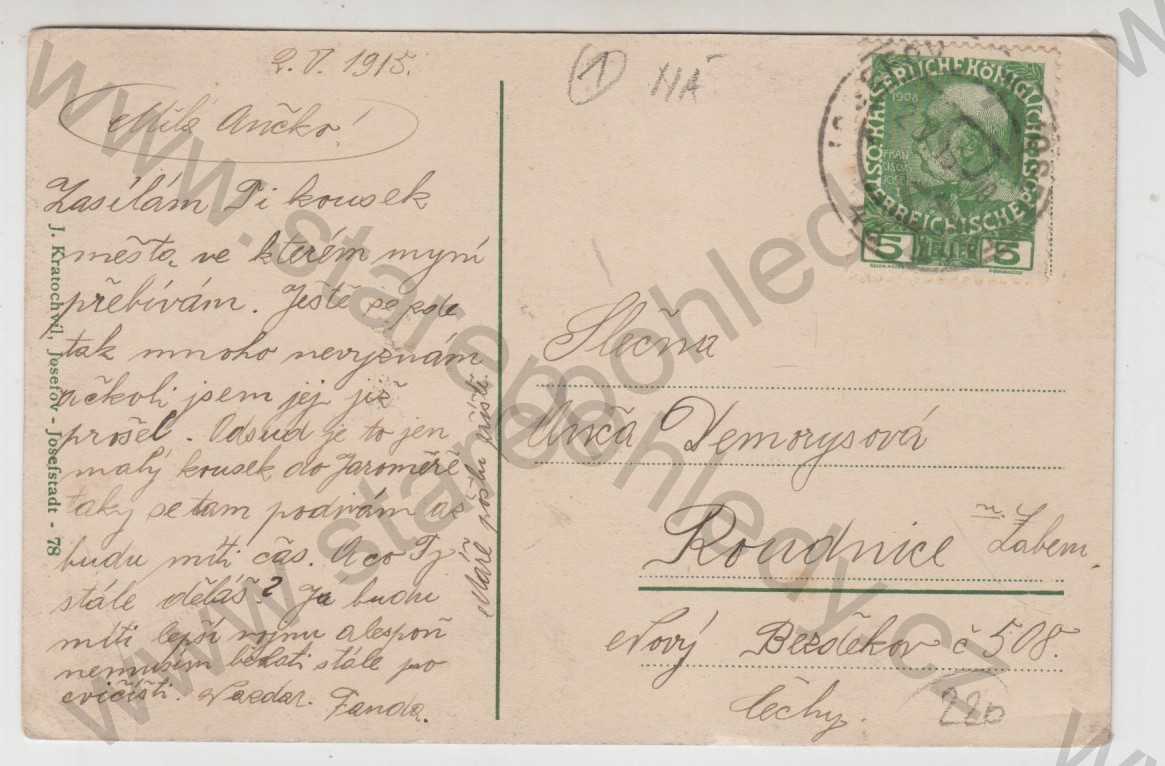 2.V. 1915.
Milá Ančko!
Zasílám Ti kousek
města, ve kterém nyní
přebívám. Ještě se zde
tak mnoho nevyznám
ačkoli jsem jej již
prošel. Odsud je to jen
malý kousek do Jaroměře
taky se tam podívám až
budu míti čas. A co Ty
stále děláš? Ja budu
míti lepší vojnu alespoň
nemusím běhati stále po
cvičišti. Nazdar. Fanda.
Máře pošlu příšti
J. Kratochvil, Josefov - Josefstadt - 78
1
NÁ
KAISERLICHE KÖNIGLICHE
ÖSTERREICHISCHE POST
1908
FRANCISCUS JOSEF I
5 5
Slečna
Anča Demorysová
Roudnice n. Labem.
Nový Bezděkov č 508.
Čechy.
220
www.starepohledy.cz
www.starepohledy.cz